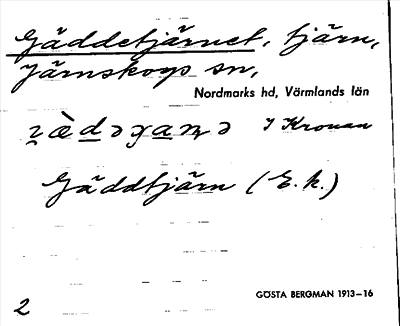 Gäddetjärnet, tjärn,
Järnskogs sn,
Nordmarks hd, Värmlands län
I Kronan
Gäddtjärn (E.k.)
GÖSTA BERGMAN 1913–16
2